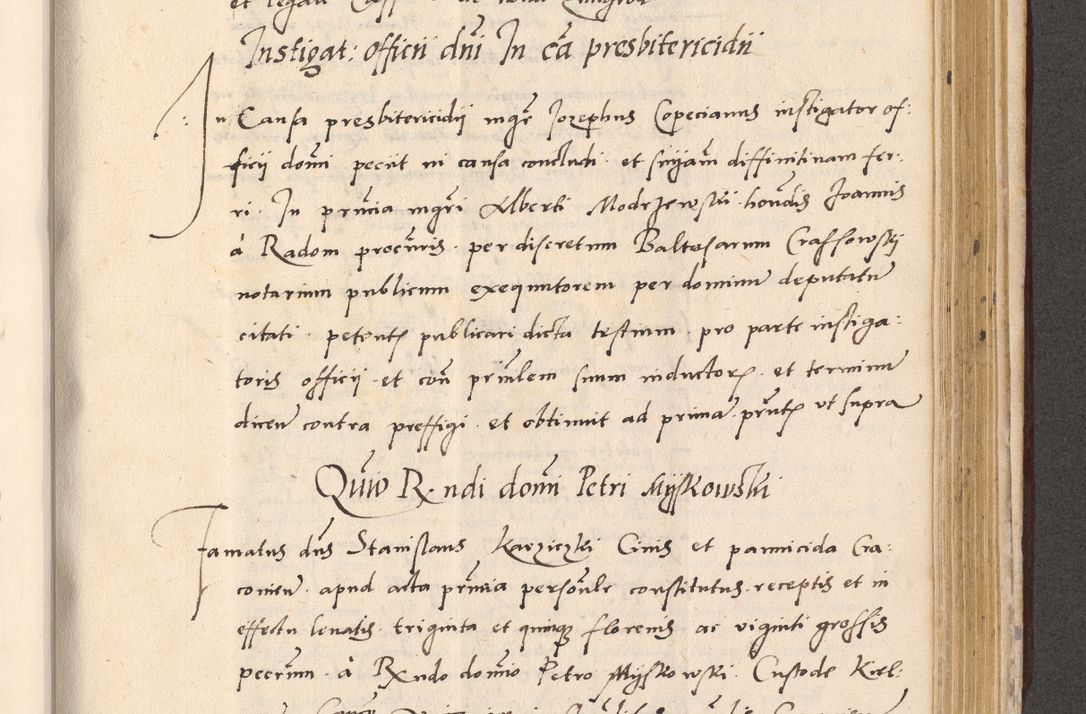 Instigat: officii dni In ca presbitericidii
In Causa presbitericidij mgr Iozephus Copecianus instigator of-
ficij domi peciit in causa concludi. et snijam diffinitiuam fer-
ri. In prncia mgri Alberti Modrzewski. hondis Joannis
à Radom procuris. per discretum Baltasarum Crassowskij
notarium publicum exequutorem per dominum deputatum
citati. petentis publicari dicta testium. pro parte instiga-
toris officij. et con prinlem suum inductor. et terminu
dicen contra preffigi. et obtinuit ad prima. prntis vt supra
Quito R. ndi domi Petri Myskowski
Famatus dns Stanislaus Cinis et pannicida Cra-
couien. apud acta prncia personlr constitutus. receptis et in
effectu leuatis. triginta et quinq florenis ac viginti grossis
pecrum. à R. ndo domio Petro Myskowski. Custode Kiel-